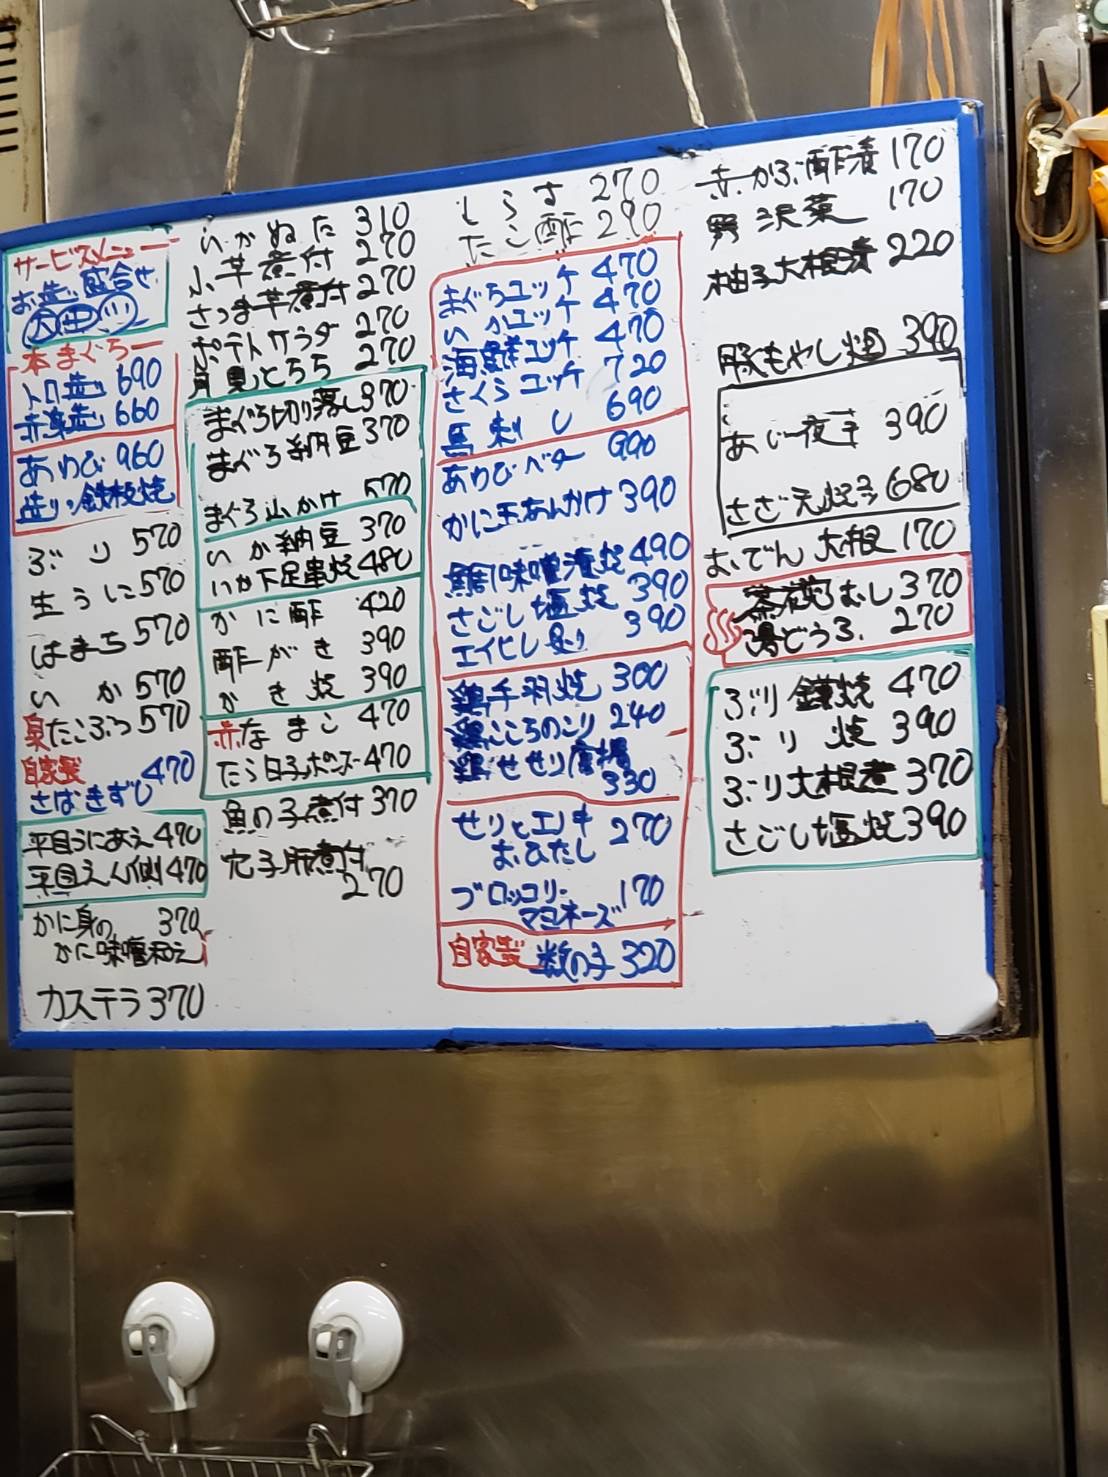 サービスメニュー
お造り盛合せ
大 中 小
本まぐろ
トロ造り 690
赤身造り 660
あわび 960
造り・鉄板焼
ぶり 570
生うに 570
はまち 570
いか 570
泉たこぶつ 570
自家製 470
さばきずし
平目うにあえ 470
平目えん側 470
かに身の 370
かに味噌和え
カステラ 370
いかぬた 310
小芋煮付 270
さつま芋煮付 270
ポテトサラダ 270
月見とろろ 270
まぐろ切り落し 370
まぐろ納豆 370
まぐろ山かけ 570
いか納豆 370
いか下足串焼 480
かに酢 420
酢がき 390
かき焼 390
赤なまこ 470
たら白子ポンズ 470
魚の子煮付 370
穴子肝煮付
270
しらす 270
たこ酢 290
まぐろユッケ 470
いかユッケ 470
海鮮ユッケ 470
さくらユッケ 720
馬刺し 690
あわびバター 990
かに玉あんかけ 390
鯛味噌漬焼 490
さごし塩焼 390
エイヒレ炙り 390
鶏手羽焼 300
鶏こころのこり 240
鶏せせり唐揚
330
せりとエノキ 270
おひたし
ブロッコリー 170
マヨネーズ
自家製 数の子 320
赤かぶ酢漬 170
野沢菜 170
柚子大根漬 220
豚もやし炒 390
あじ一夜干 390
さざえ焼2コ 680
おでん 大根 170
茶碗むし 370
湯どうふ 270
ぶり鎌焼 470
ぶり焼 390
ぶり大根煮 370
さごし塩焼 390